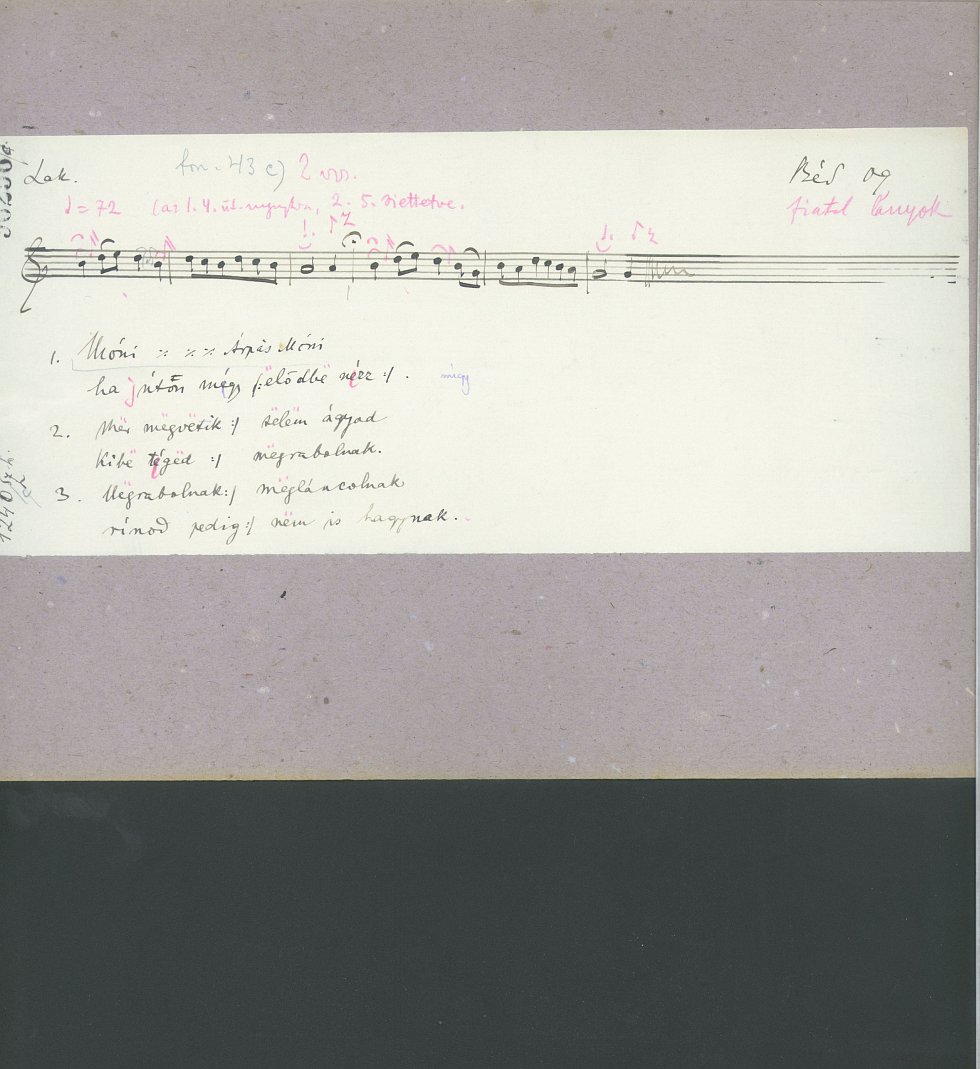 Lak. fon. 43 c) 2 vsz. Béd 09
♩=72 (az 1. 4. üt. nyujtva, 2. 5. siettetve. fiatal lányok
1. Móni ٪ ٪ ٪ Árpás Móni
ha j útőn mégy /:elődbë nézz :/ . mígy
2. Mer mëgvetik :/ sëlëm ágyad
Kibë tégëd :/ mëgrabolnak.
3. Mëgrabolnak :/ mëgláncolnak
rínod pedig :/ nëm is hagynak.
1240